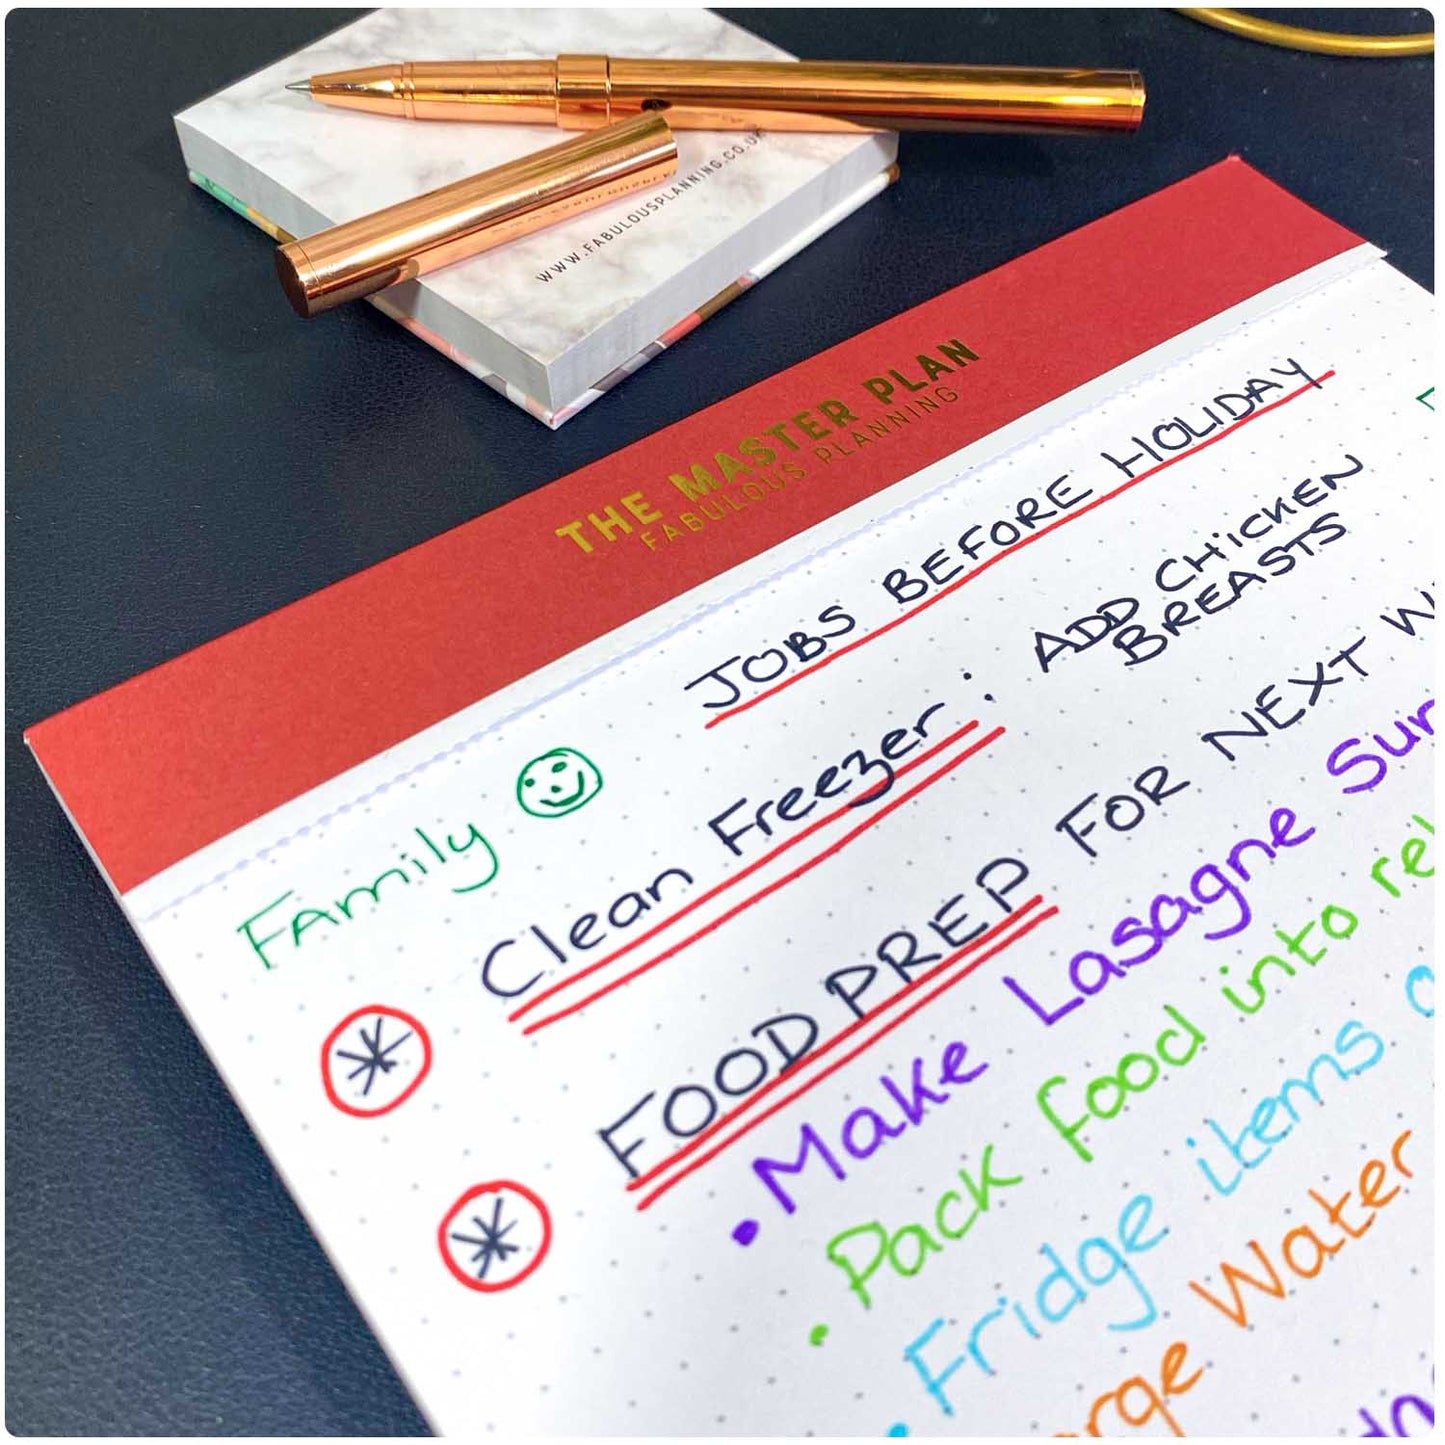 WWW.FABULOUSPLANNING.CO.UK
THE MASTER PLAN
FABULOUS PLANNING
JOBS BEFORE HOLIDAY
Family
Clean Freezer: ADD CHICKEN
BREASTS
FOOD PREP FOR NEXT
• Make Lasagne
• Pack food into
• Fridge items
Water